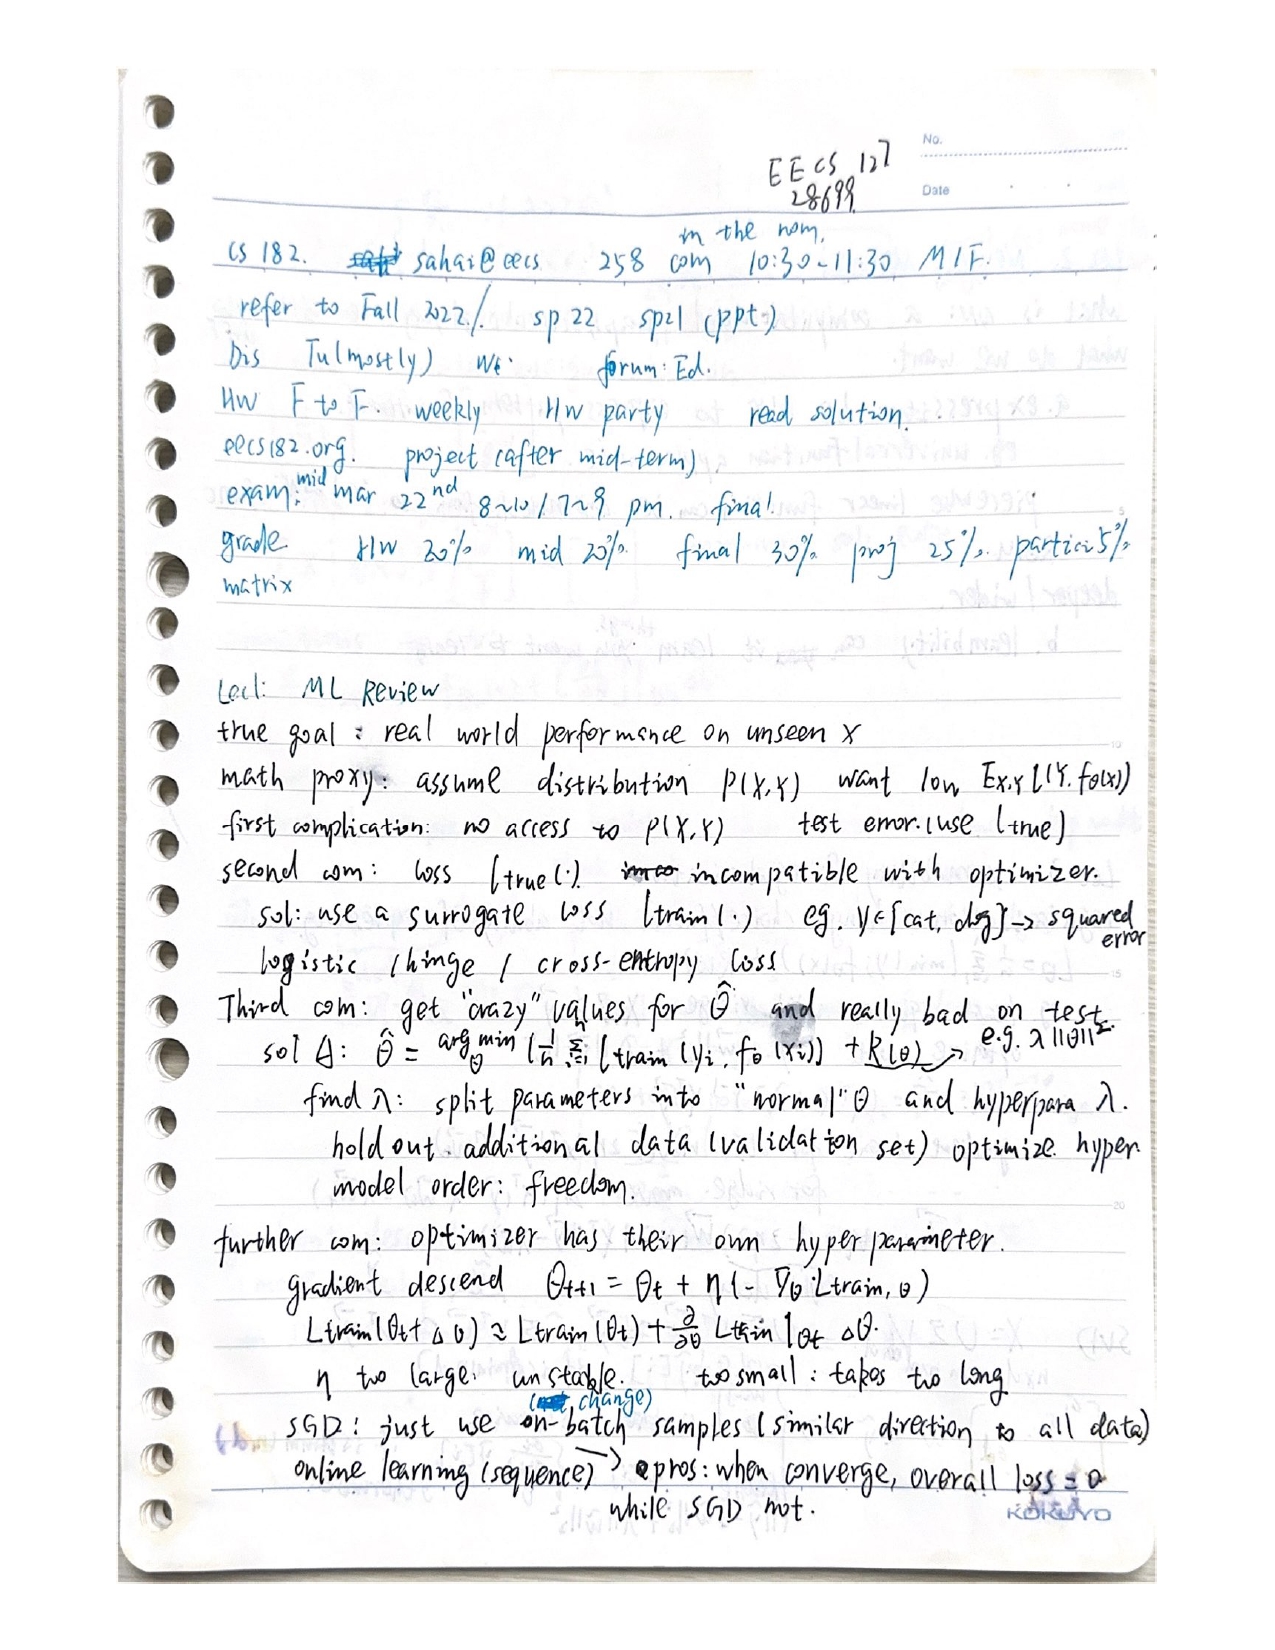 No.
EECS 127
28699
Date
in the nom,
CS 182. sahai@eecs 258 com 10:30~11:30 M/F.
refer to Fall 2022/ sp 22 sp21 (ppt)
Dis Tu(mostly) We. forum: Ed.
HW F to F. weekly HW party read solution.
eecs182.org. project (after mid-term)
exam: mid mar 22nd 8~10/7~9 pm. final.
grade HW 20% mid 20% final 30% proj 25%. partici 5%
matrix
Lec1: ML Review
true goal: real world performance on unseen X
math proxy: assume distribution P(X,Y) want low Ex,Y[l(Y, fθ(x))
first complication: no access to P(X,Y) test error. (use ltrue)
second com: loss ltrue(·) incompatible with optimizer.
sol: use a surrogate loss ltrain(·) eg. y∈{cat, dog}→ squared error
logistic / hinge / cross-entropy loss
Third com: get "crazy" values for θ̂ and really bad on test.
sol A: θ̂ = argmin θ (1/n Σ i=1 n ltrain(yi, fθ(xi)) + R(θ) → e.g. λ||θ||²
find λ: split parameters into "normal" θ and hyperpara λ.
hold out additional data (validation set) optimize hyper.
model order: freedom.
further com: optimizer has their own hyperparameter.
gradient descend θt+1 = θt + η(- ∇θ Ltrain, θ)
Ltrain(θt + Δθ) ≈ Ltrain(θt) + ∂/∂θ Ltrain|θt Δθ.
η too large: unstable. too small: takes too long
change)
SGD: just use on-batch samples (similar direction to all data)
online learning (sequence) → pros: when converge, overall loss = 0
while SGD not.
KOKUYO